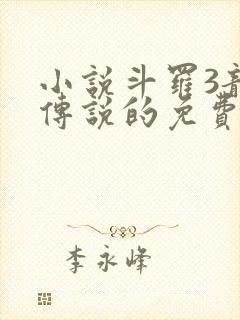 小說斗羅3
傳說的免費
李永峰